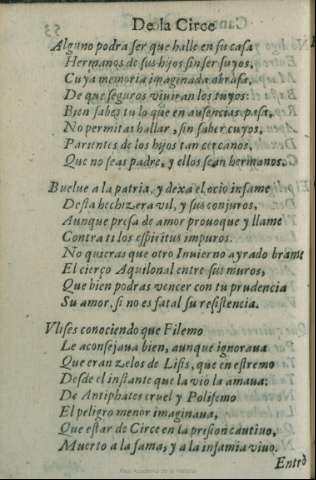 De la Circe
Alguno podra ser que halle en su casa
Hermanos de sus hijos sin ser suyos,
Cuya memoria imaginada abrasa,
De que seguros viuiran los tuyos:
Bien sabes tu lo que en ausencias pasa,
No permitas hallar, sin saber cuyos,
Parientes de los hijos tan cercanos,
Que no seas padre, y ellos sean hermanos.
Buelue a la patria, y dexa el ocio infame
Desta hechizera vil, y sus conjuros,
Aunque presa de amor prouoque y llame
Contra ti los espiritus impuros.
No quieras que otro Inuierno ayrado brame
El cierço Aquilonal entre sus muros,
Que bien podras vencer con tu prudencia
Su amor, si no es fatal su resistencia.
Vlises conociendo que Filemo
Le aconsejaua bien, aunque ignoraua
Que eran zelos de Lisis, que en estremo
Desde el instante que la vio la amaua:
De Antiphates cruel y Polifemo
El peligro menor imaginaua,
Que estar de Circe en la prision cautiuo,
Muerto a la fama, y a la infamia viuo.
Entrò
Real Academia de la Historia